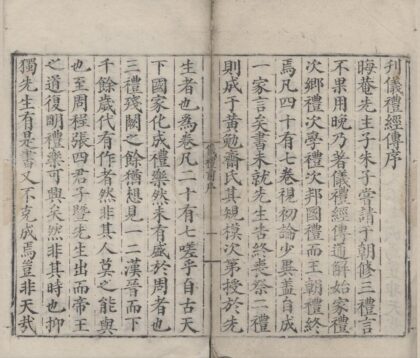 刊儀禮經傳序
晦菴先生子朱子嘗請于朝修三禮言
不果用晚乃著儀禮經傳通解始家禮
次鄉禮次學禮次邦國禮而王朝禮終
焉凡四十有七卷視初論少異蓋自成
一家言矣書未就先生告終喪祭二禮
則成于黄勉齋氏其規模次第授於先
生者也為卷凡二十有七嗟乎自古天
下國家化成禮樂然未有盛於周者也
三禮殘闕之餘猶想見一二漢晉而下
千餘歲代有作者然非其人莫之能與
也至周程張四君子曁先生出而帝王
之道復明禮樂可興矣然非其時也抑
獨先生有是書又不克成焉豈非天哉